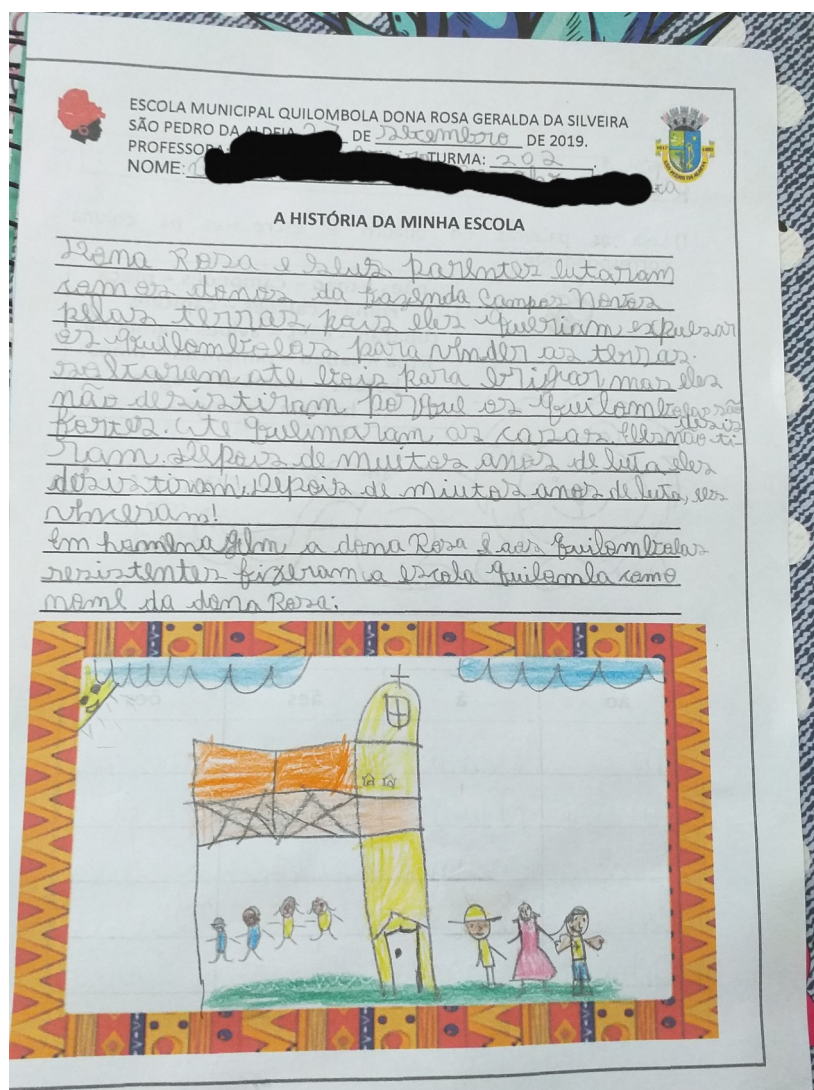 ESCOLA MUNICIPAL QUILOMBOLA DONA ROSA GERALDA DA SILVEIRA
SÃO PEDRO DA ALDEIA 27 DE setembro DE 2019.
PROFESSORA TURMA: 202
NOME:
A HISTÓRIA DA MINHA ESCOLA
Dona Rosa e seus parentes lutaram
com os donos da fazenda Campos Novos
pelas terras, pois eles queriam expulsar
os quilombolas para vender as terras.
soltaram ate bois para brigar mas eles
não desistiram porque os quilombolas são
fortes. Ate queimaram as casas. Eles não desis ti
ram. Depois de muitos anos de luta eles
desistiram. Depois de miutos anos de luta, eles
venceram!
Em homenagem a dona Rosa e aos quilombolas
resistentes fizeram a escola quilombla como
nome da dona Rosa.